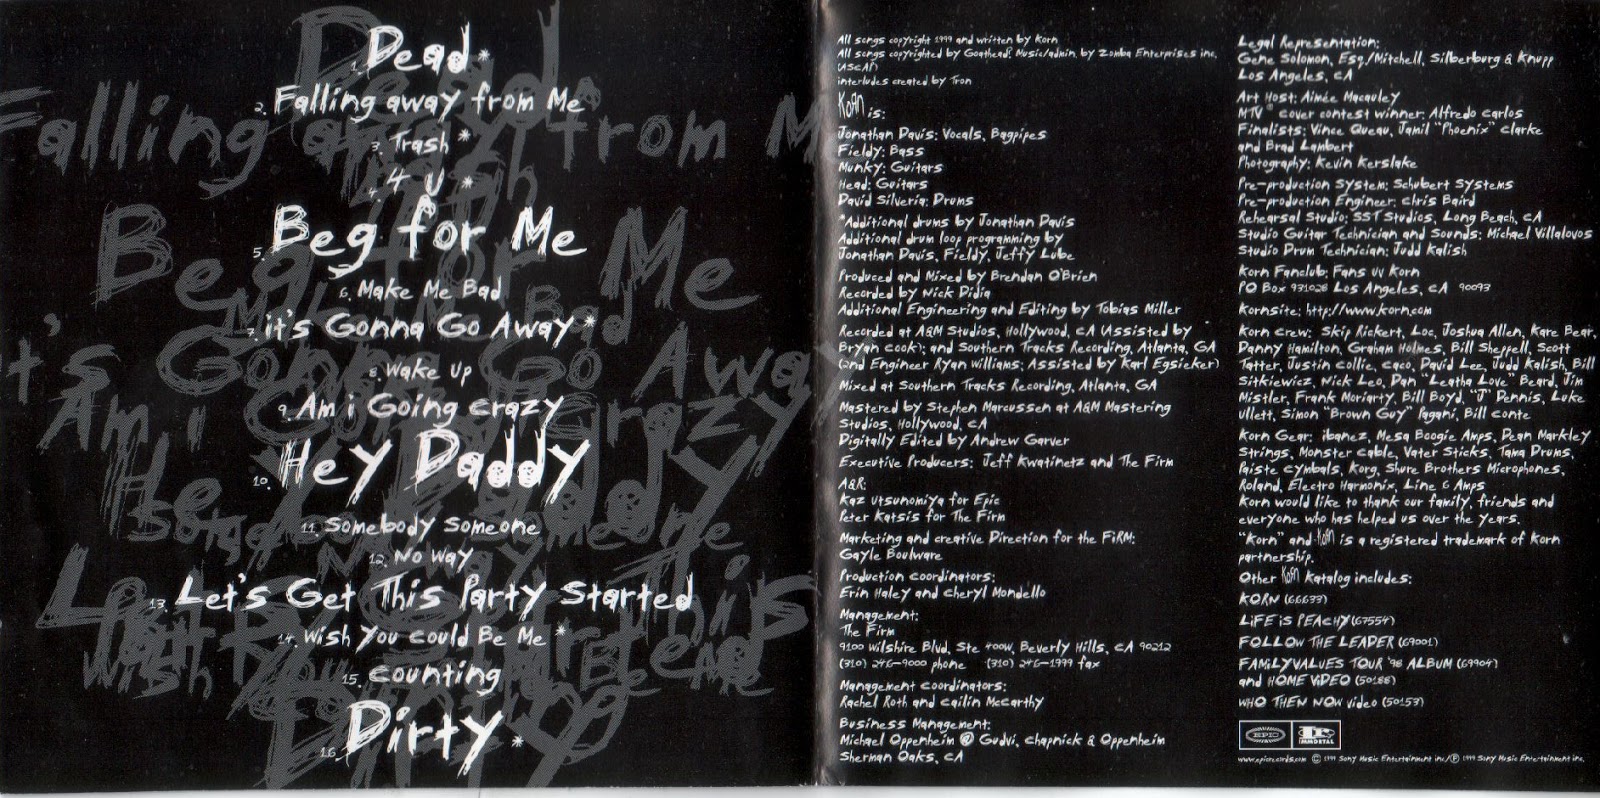 1. Dead *
2. Falling away from Me
3. Trash *
4. 4 U *
5. Beg for Me
6. Make Me Bad
7. it's Gonna Go Away *
8. Wake Up
9. Am i Going crazy
10. Hey Daddy
11. Somebody Someone
12. No Way
13. Let's Get This Party Started
14. Wish You could Be Me *
15. counting
16. Dirty *
All songs copyright 1999 and written by Korn
All songs copyrighted by Goathead Music/admin. by Zomba Enterprises inc.
(ASCAP)
interludes created by Tron
KoRn is:
Jonathan Davis: Vocals, Bagpipes
Fieldy: Bass
Munky: Guitars
Head: Guitars
David Silveria: Drums
*Additional drums by Jonathan Davis
Additional drum loop programming by
Jonathan Davis, Fieldy, Jeffy Lube
Produced and Mixed by Brendan O'Brien
Recorded by Nick Didia
Additional Engineering and Editing by Tobias Miller
Recorded at A&M Studios, Hollywood, CA (Assisted by
Bryan Cook); and Southern Tracks Recording, Atlanta, GA
(2nd Engineer Ryan Williams; Assisted by Karl Egsieker)
Mixed at Southern Tracks Recording, Atlanta, GA
Mastered by Stephen Marcussen at A&M Mastering
Studios, Hollywood, CA
Digitally Edited by Andrew Garver
Executive Producers: Jeff Kwatinetz and The Firm
A&R:
Kaz Utsunomiya for Epic
Peter Katsis for The Firm
Marketing and creative Direction for the FiRM:
Gayle Boulware
Production coordinators:
Erin Haley and Cheryl Mondello
Management:
The Firm
9100 Wilshire Blvd, Ste 400W, Beverly Hills, CA 90212
(310) 246-9000 phone (310) 246-1999 fax
Management coordinators:
Rachel Roth and Cailin McCarthy
Business Management:
Michael Oppenheim @ Gudvi, Chapnick & Oppenheim
Sherman Oaks, CA
Legal Representation:
Gene Solomon, Esq./Mitchell, Silberburg & Knupp
Los Angeles, CA
Art Host: Aimée Macauley
MTV® cover contest winner: Alfredo Carlos
Finalists: Vince Queau, Jamil "Phoenix" Clarke
and Brad Lambert
Photography: Kevin Kerslake
Pre-production System: Schubert Systems
Pre-production Engineer: Chris Baird
Rehearsal Studio: SST Studios, Long Beach, CA
Studio Guitar Technician and Sounds: Michael Villalovos
Studio Drum Technician: Judd Kalish
Korn Fanclub: Fans uv Korn
PO Box 931028 Los Angeles, CA 90093
Kornsite: http://www.korn.com
Korn Crew: Skip Rickert, Loc, Joshua Allen, Kare Bear,
Danny Hamilton, Graham Holmes, Bill Sheppell, Scott
Tatter, Justin Collie, Caco, David Lee, Judd Kalish, Bill
Sitkiewicz, Nick Leo, Dan "Leatha Love" Beard, Jim
Mistler, Frank Moriarty, Bill Boyd, "J" Dennis, Luke
Ullett, Simon "Brown Guy" Pagani, Bill Conte
Korn Gear: ibanez, Mesa Boogie Amps, Dean Markley
Strings, Monster Cable, Vater Sticks, Tama Drums,
Paiste Cymbals, Korg, Shure Brothers Microphones,
Roland, Electro Harmonix, Line 6 Amps
Korn would like to thank our family, friends and
everyone who has helped us over the years.
"Korn" and KoRn is a registered trademark of Korn
partnership.
Other KoRn Katalog includes:
KORN (66633)
LiFE iS PEACHY (67554)
FOLLOW THE LEADER (69001)
FAMILY VALUES TOUR '98 ALBUM (69904)
and HOME ViDEO (50188)
WHO THEN NOW video (50153)
EPIC IMMORTAL
www.epicrecords.com © 1999 Sony Music Entertainment inc./℗ 1999 Sony Music Entertainment inc.